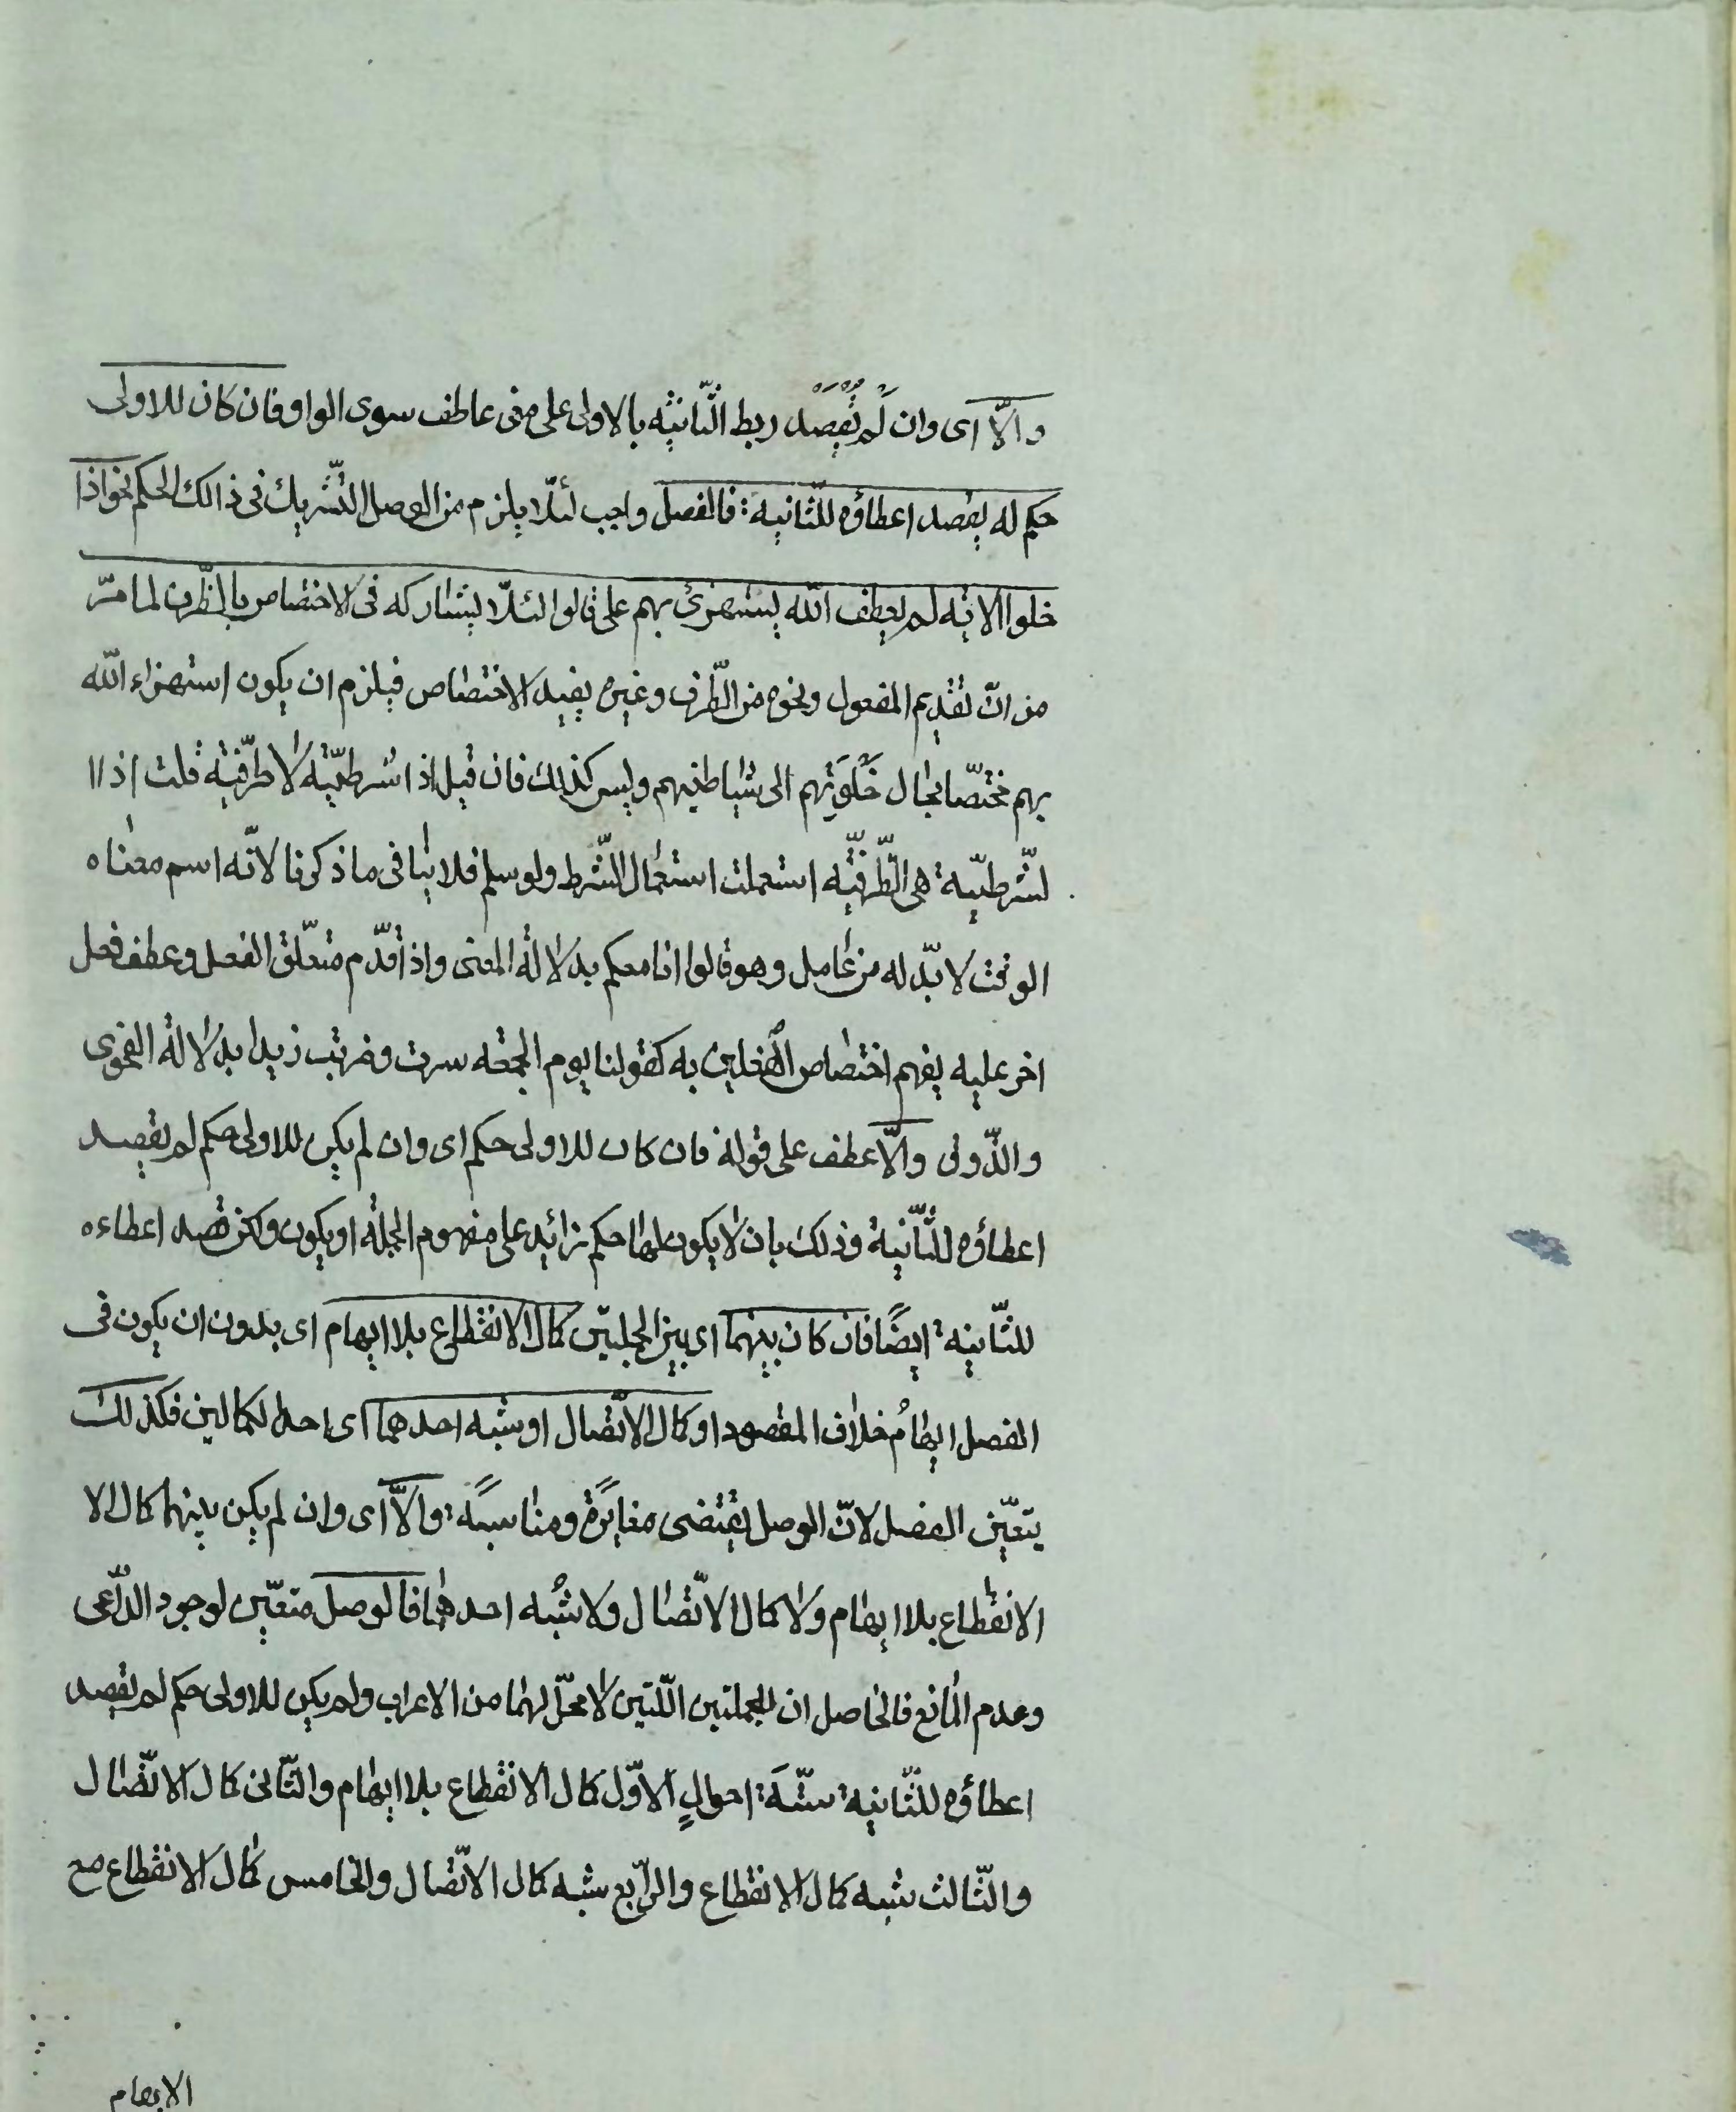 والّا اى وان لم يُقصد ربط الثّانيه بالاولى على معنى عاطف سوى الواو فان كان للاولى
حكم له يقصد اعطاؤه للثّانيه فالفصل واجب لئلّا يلزم من الوصل التّشريك فى ذالك الحكم نحو اذا
خلوا الايه لم يعطف اللّه يستهزئ بهم على قالوا لئلّا يشاركه فى الاختصاص بالظّرف لما مرّ
من انّ تقديم المفعول ونحوه من الظّرف وغيره يفيد الاختصاص فيلزم ان يكون استهزاء اللّه
بهم مختصّا بحال خَلْوَتِهم الى شياطينهم وليس كذلك فان قيل اذا شرطيّة لا ظرفيّة قلت اذا ا
لشّرطيّة هى الظّرفيّه استعملت استعمال الشّرط ولو سلم فلا ينافى ما ذكرنا لانّه اسم معناه
الوقت لا بدّ له من عامل وهو قالوا انا معكم بدلالة المعنى واذا قدّم متعلّق الفعل وعطف فعل
اخر عليه يفهم اختصاص الفعلين به كقولنا يوم الجمعه سرت وضربت زيدا بدلالة الفحوى
والذّوق والّا عطف على قوله فان كان للاولى حكم اى وان لم يكن للاولى حكم لم يقصد
اعطاؤه للثّانية وذلك بان لا يكون لها حكم زائد على مفهوم الجملة او يكون ولكن قصد اعطاءه
للثّانيه ايضًا فان كان بينهما اى بين الجملتين كمال الانقطاع بلا ايهام اى بدون ان يكون فى
الفصل ايهامُ خلاف المقصود او كمال الاتّصال او شبه احدهما اى احد الكمالين فكذلك
يتعيّن الفصل لانّ الوصل يقتضى مغايرةً ومناسبةً والّا اى وان لم يكن بينهما كمال الا
الانقطاع بلا ايهام ولا كمال الاتّصال ولا شبه احدهما فالوصل متعيّن لوجود الدّاعى
وعدم المانع فالحاصل ان للجملتين اللّتين لا محلّ لهما من الاعراب ولم يكن للاولى حكم لم يقصد
اعطاؤه للثّانيه ستّة احوالٍ الاوّل كمال الانقطاع بلا ايهام والثّانى كمال الاتّصال
والثّالث شبه كمال الانقطاع والرّابع شبه كمال الاتّصال والخامس كمال الانقطاع مع
الايهام